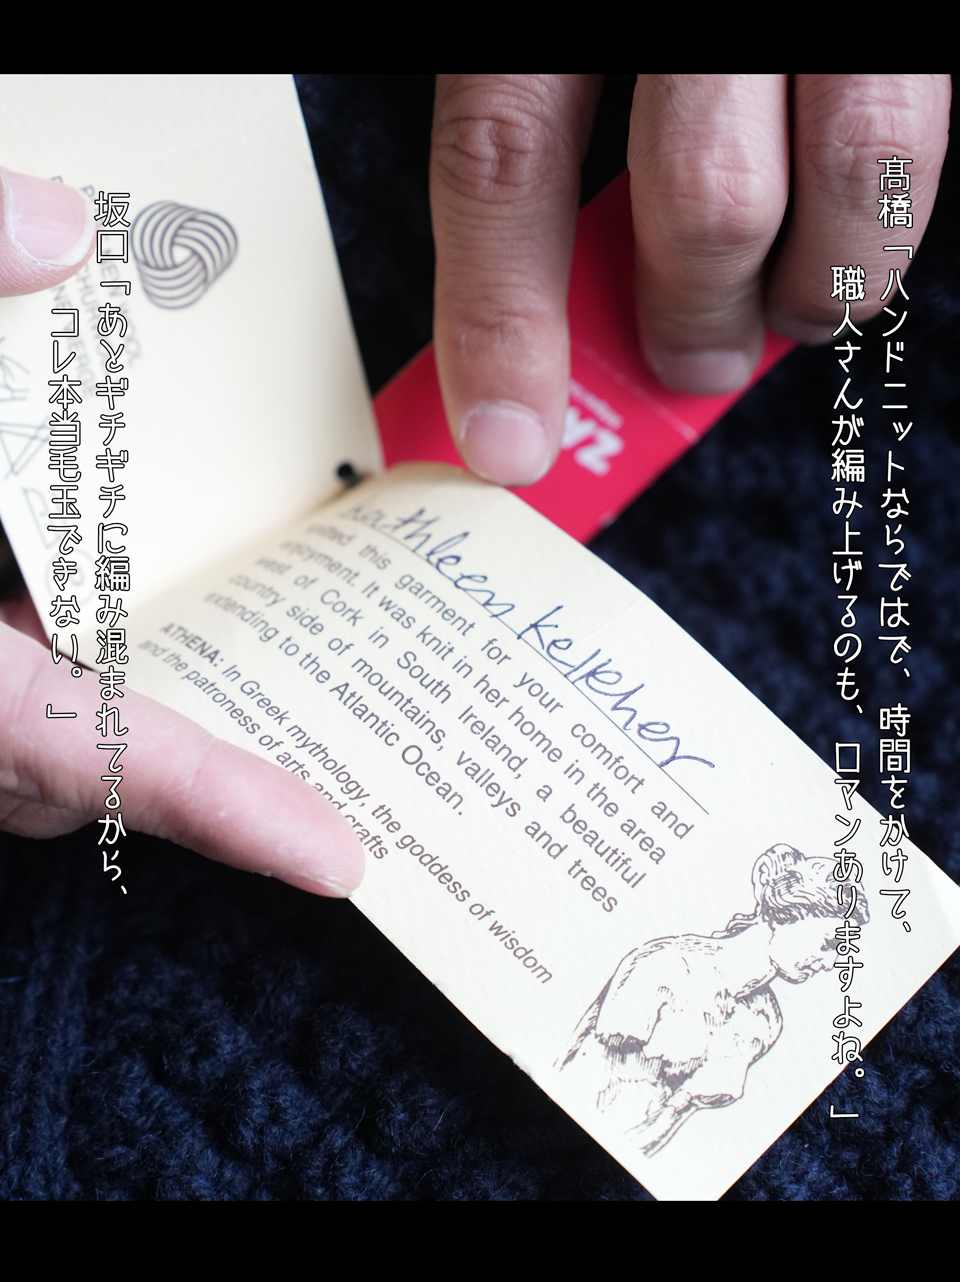 髙橋「ハンドニットならではで、時間をかけて、
職人さんが編み上げるのも、ロマンありますよね。」
坂口「あとギチギチに編み混まれてるから、
コレ本当毛玉できない。」
Kathleen Kelleher
knitted this garment for your comfort and
enjoyment. It was knit in her home in the area
west of Cork in South Ireland, a beautiful
country side of mountains, valleys and trees
extending to the Atlantic Ocean.
ATHENA: In Greek mythology, the goddess of wisdom
and the patroness of arts and crafts